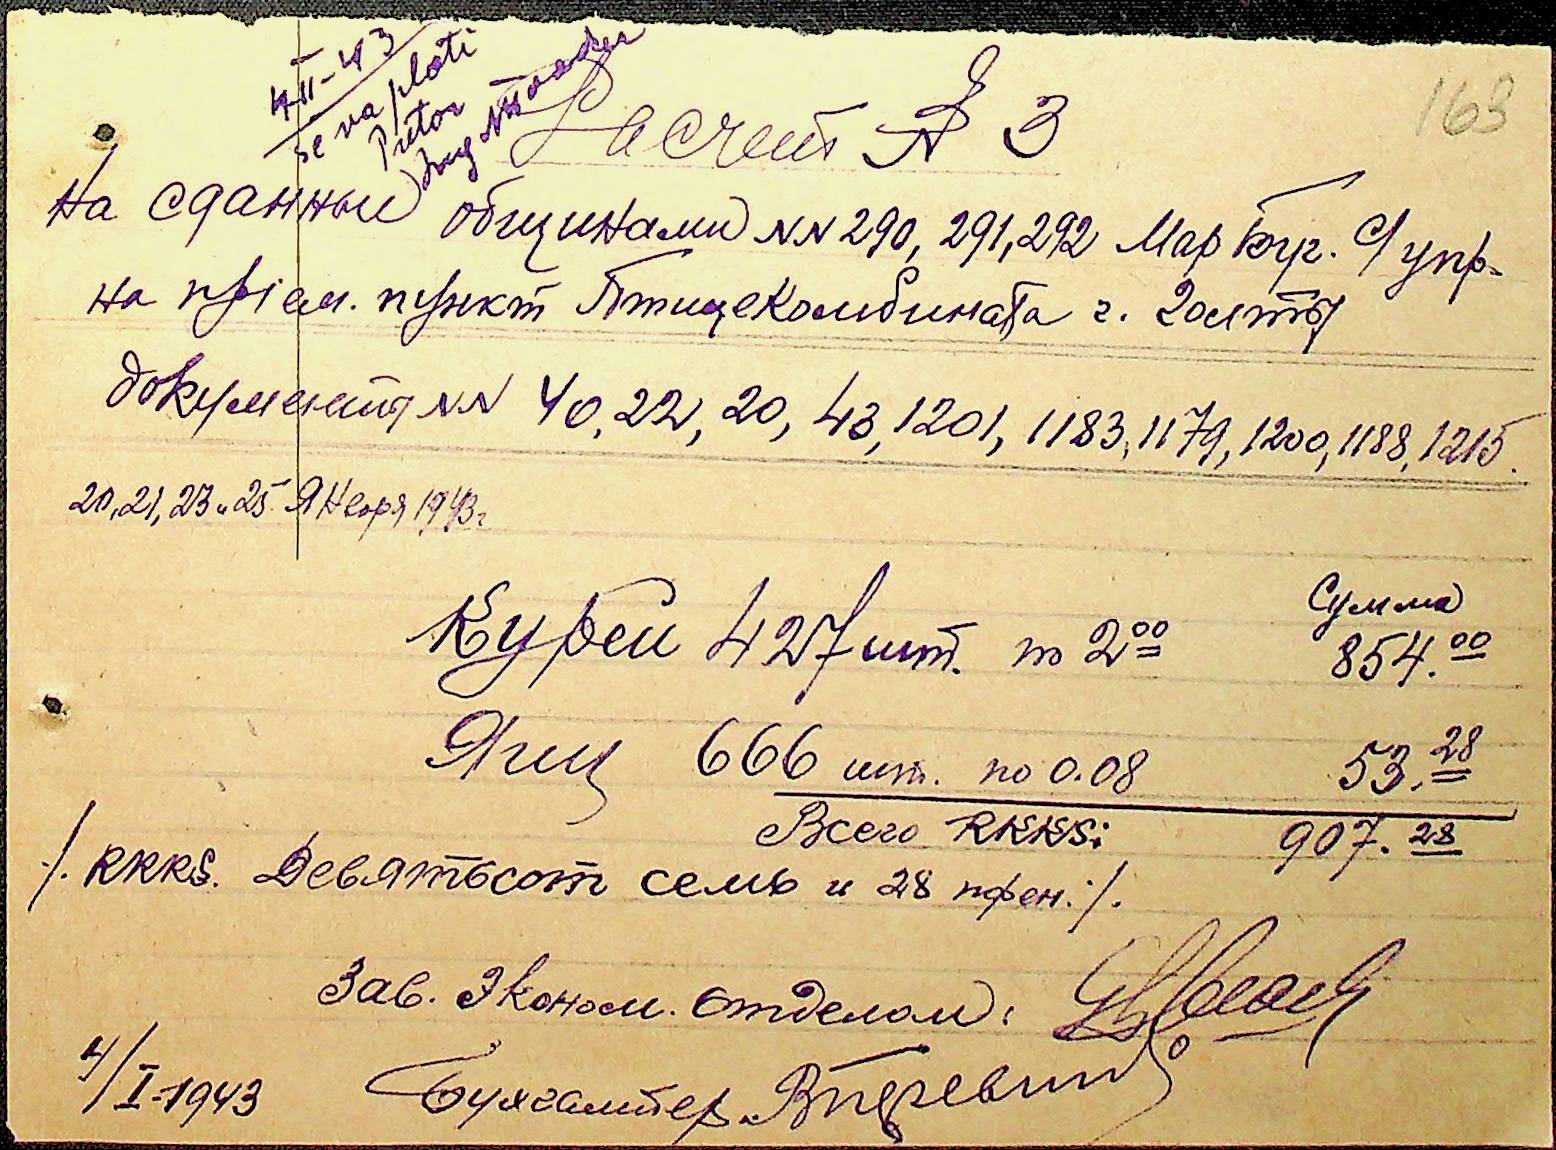 4-II-43
se va plati
Pretor
163
Расчет № 3
На сданныи общинами NN 290, 291, 292 Мар буг. С/упр.
на пріем. пункт Птицекомбината г. Голты
документы NN 40, 22, 20, 43, 1201, 1183, 1179, 1200, 1188, 1215.
20, 21, 23 и 25 Января 1943 г
Сумма
Курей 427 шт. по 2⁰⁰ 854.⁰⁰
Яиц 666 шт. по 0.08 53.²⁸
Всего RKKS: 907.²⁸
/. RKKS. Девятьсот семь и 28 пфен./.
Зав. Эконом. Отделом:
4/I-1943 Бухгалтер